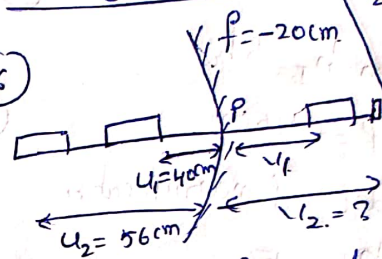 f = -20cm.
P.
u₁=40cm
v₁
u₂= 56cm
v₂. = ?